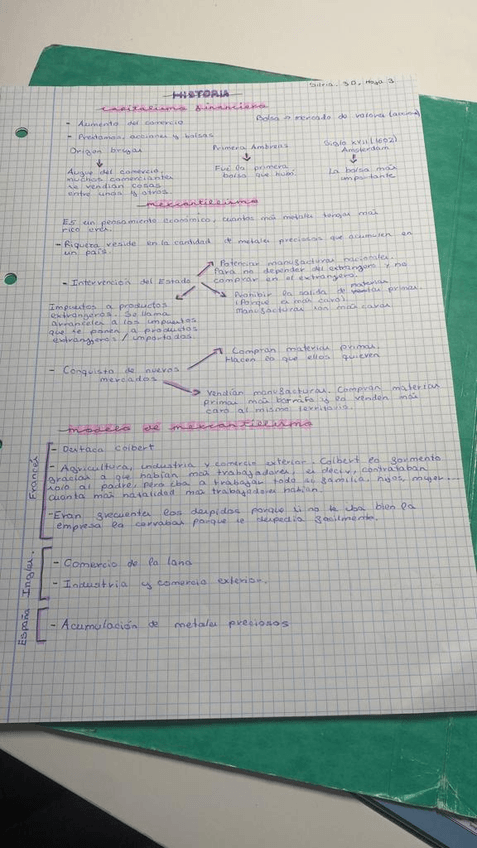 HISTORIA
Capitalismo financiero
- Aumento del comercio
Bolsa → mercado de valores (acciones)
- Prestamos, acciones y bolsas
Origen brujas
Auge del comercio,
muchos comerciantes
se vendían cosas
entre unos y otros
Primera Amberes
Fue la primera
bolsa que hubo.
Siglo XVII (1602)
Amsterdam
La bolsa más
importante
mercantilismo
Es un pensamiento económico, cuantos más metales tengas más
rico eres.
- Riqueza reside en la cantidad de metales preciosos que acumulen en
un país.
- Intervención del Estado
Potenciar manufacturas nacionales.
Para no depender del extrangero y no
comprar en el extrangero
Prohibir la salida de materias primas
(Porque es más caro).
manufacturas son más caras
Impuestos a productos
extrangeros. Se llama
aranceles a los impuestos
que te ponen a productos
extrangeros / importados.
- Conquista de nuevos
mercados
Compran materias primas.
Hacen lo que ellos quieren
Vendían manufacturas. Compran materias
primas más barato y la venden más
caro al mismo territorio.
modelo de mercantilismo
Frances
- Destaca Colbert
- Agricultura, industria y comercio exterior. Colbert lo fomenta
gracias a que habían más trabajadores, es decir, contrataban
solo al padre, pero iba a trabajar toda su familia, hijos, mujer...
cuanta más natalidad más trabajadores habían.
- Eran frecuentes los despidos porque si no te iba bien la
empresa la cerrabas porque se despedía facilmente.
Ingles.
- Comercio de la lana
- Industria y comercio exterior.
España
- Acumulación de metales preciosos